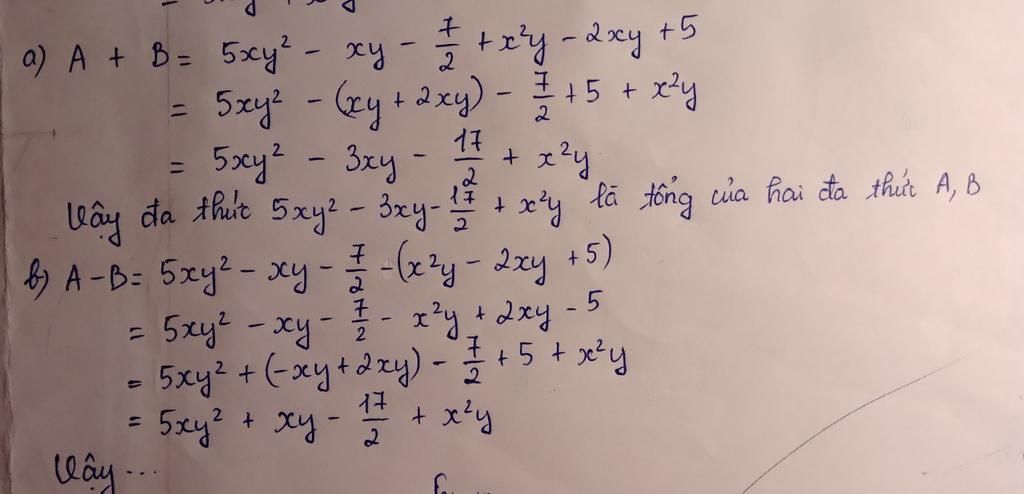 a) A + B = 5xy² - xy - 7/2 + x²y - 2xy + 5
= 5xy² - (xy + 2xy) - 7/2 + 5 + x²y
= 5xy² - 3xy - 17/2 + x²y
Vậy đa thức 5xy² - 3xy - 17/2 + x²y là tổng của hai đa thức A, B
b) A - B = 5xy² - xy - 7/2 - (x²y - 2xy + 5)
= 5xy² - xy - 7/2 - x²y + 2xy - 5
= 5xy² + (-xy + 2xy) - 7/2 + 5 + x²y
= 5xy² + xy - 17/2 + x²y
Vậy ...